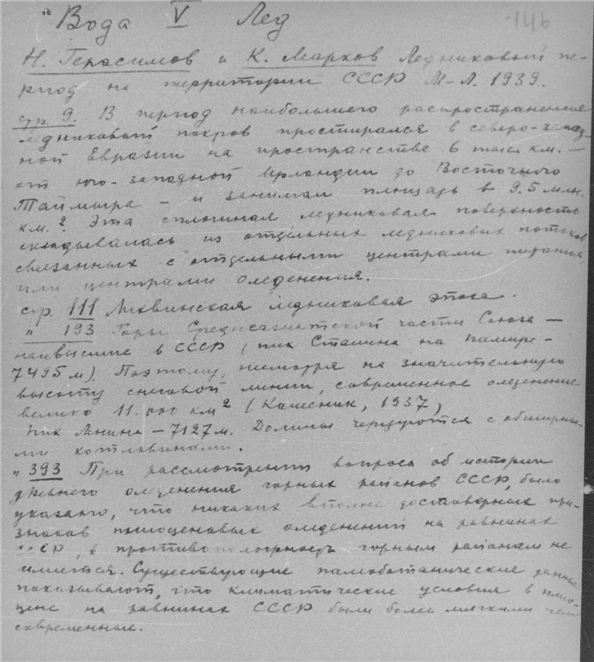 " Вода V Лед -146
Н. Герасимов и К. Марков Ледниковый пе-
риод на территории СССР М-Л. 1939.
стр. 9. В период наибольшего распространения
ледниковый покров простирался в северо-запад
ной Евразии на пространстве в 6 тыс. км. —
от юго-западной Ирландии до Восточного
Таймыра — и занимал площадь в 9,5 млн.
км.² Эта сплошная ледниковая поверхность
складывалась из отдельных ледниковых потоков
связанных с отдельными центрами питания,
или центрами оледенения.
стр. 111 Лихвинская ледниковая эпоха.
" 193 Горы Среднеазиатской части Союза —
наивысшие в СССР (пик Сталина на Памире-
7495 м). Поэтому, несмотря на значительную
высоту снеговой линии, современное оледенение
велико 11.000 км² (Калесник, 1937),
Пик Ленина — 7127 м. Долины чередуются с обширны-
ми котловинами.
" 393 При рассмотрении вопроса об истории
древнего оледенения горных районов СССР, было
указано, что никаких вполне достоверных при-
знаков плиоценовых оледенений на равнинах
СССР, в противоположность горным районам не
имеется. Существующие палеоботанические данные
показывают, что климатические условия в плио-
цене на равнинах СССР были более мягкими чем
современные.